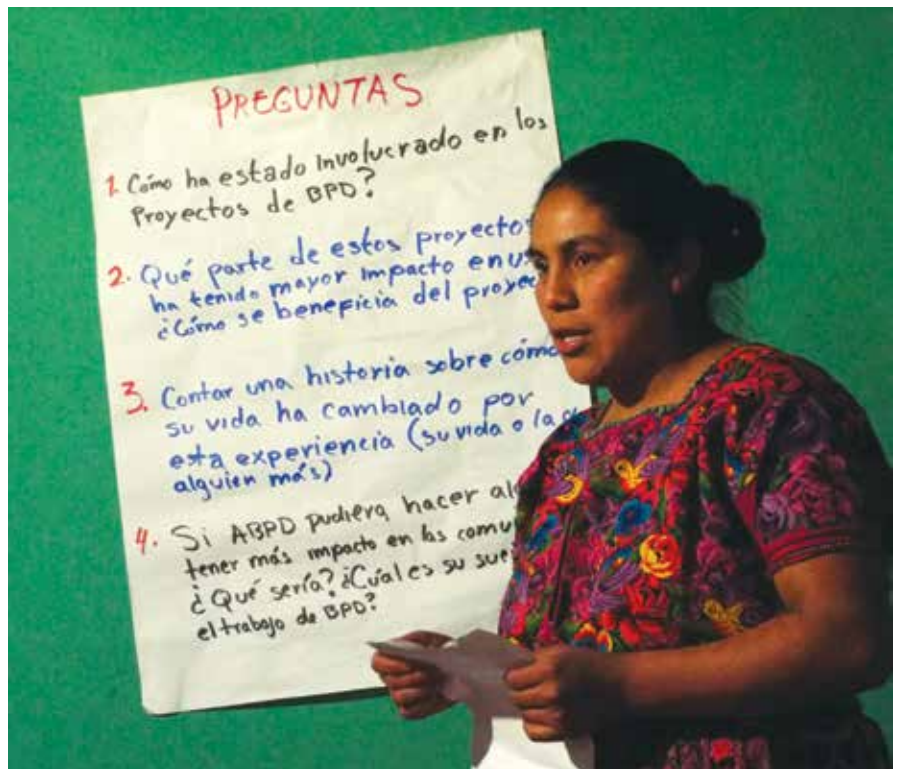 PREGUNTAS
1. Cómo ha estado involucrado en los
Proyectos de BPD?
2. Qué parte de estos proyectos
ha tenido mayor impacto en
¿Cómo se beneficia del
3. Contar una historia sobre cómo
su vida ha cambiado por
esta experiencia (su vida o la
alguien más)
4. Si ABPD pudiera hacer
tener más impacto en las
¿Qué sería? ¿Cuál es su
el trabajo de BPD?